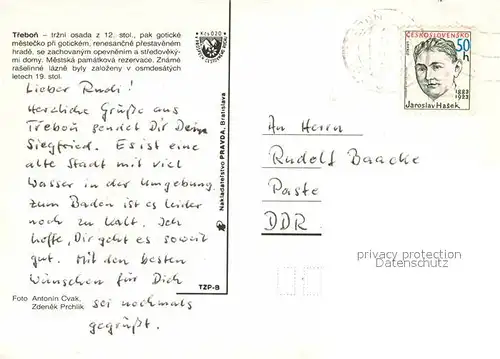 Třeboň – tržní osada z 12. stol., pak gotické
městečko při gotickém, renesančně přestavěném
hradě, se zachovaným opevněním a středověký-
mi domy. Městská památková rezervace. Známé
rašelinné lázně byly založeny v osmdesátých
letech 19. stol.
Lieber Rudi!
Herzliche Grüße aus
Třeboň sendet Dir Dein
Siegfried. Es ist eine
alte Stadt mit viel
Wasser in der Umgebung
zum Baden ist es leider
noch zu kalt. Ich
hoffe, Dir geht es soweit
gut. Mit den besten
Wünschen für Dich
sei nochmals
gegrüßt.
Foto Antonín Cvak,
Zdeněk Prchlík
Kčs 0,20
Nakladatelstvo PRAVDA, Bratislava
TZP-B
ČESKOSLOVENSKO
50 h
1883
1923
Jaroslav Hašek
An Herrn
Rudolf Baacke
Paste
DDR
privacy protection
Datenschutz